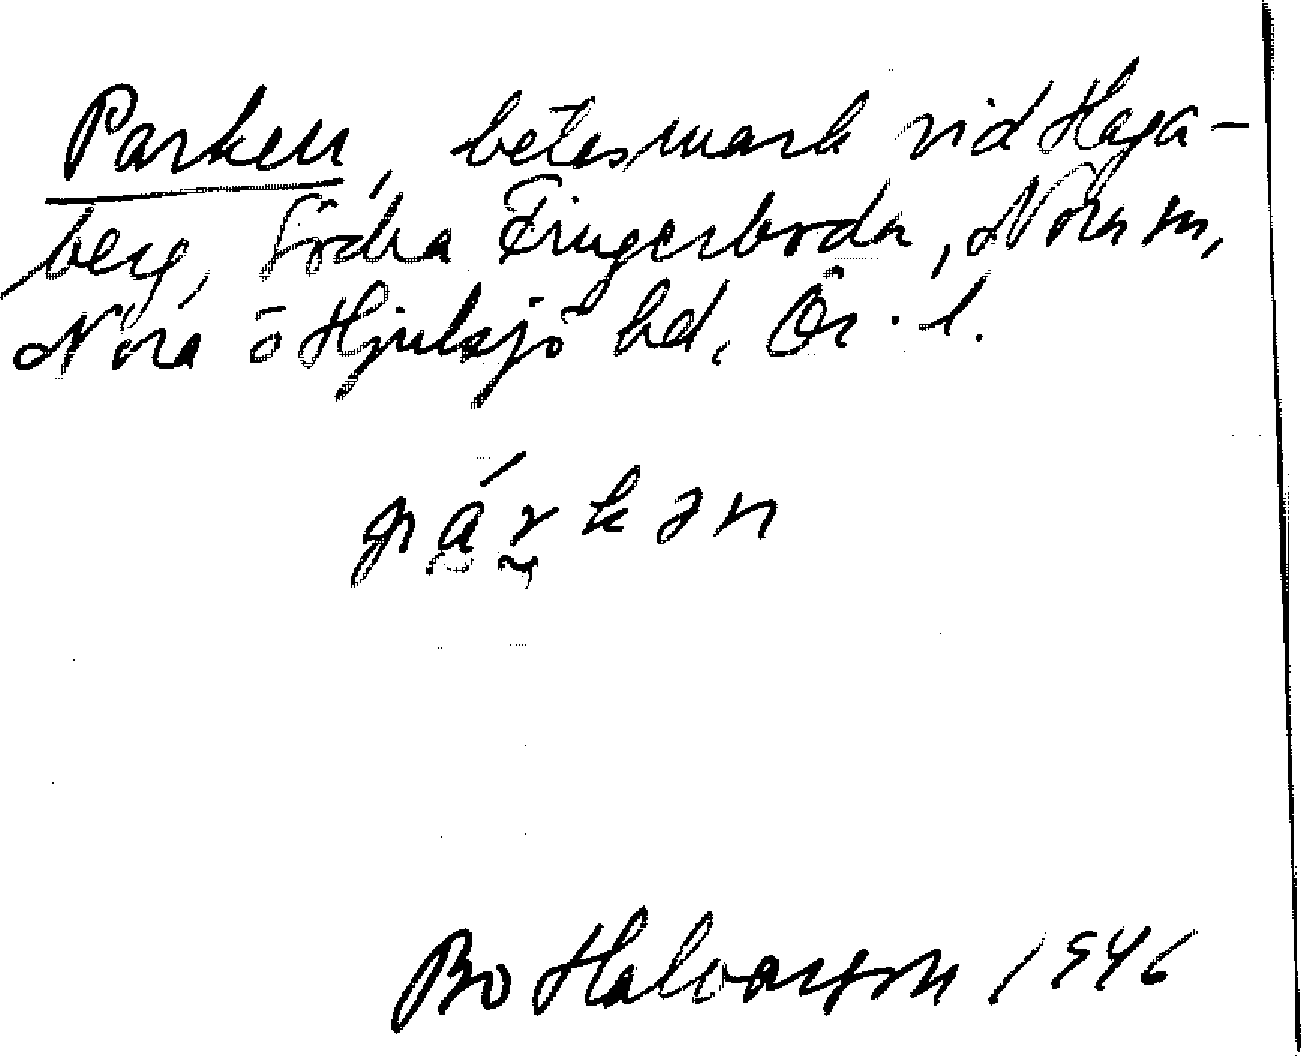 Parken, betesmark vid Haga-
berg, Södra Fingerboda, Nora sn,
Nora o Hjulsjö hd, Ör. l.
párkən
Bo Halvarson 1946